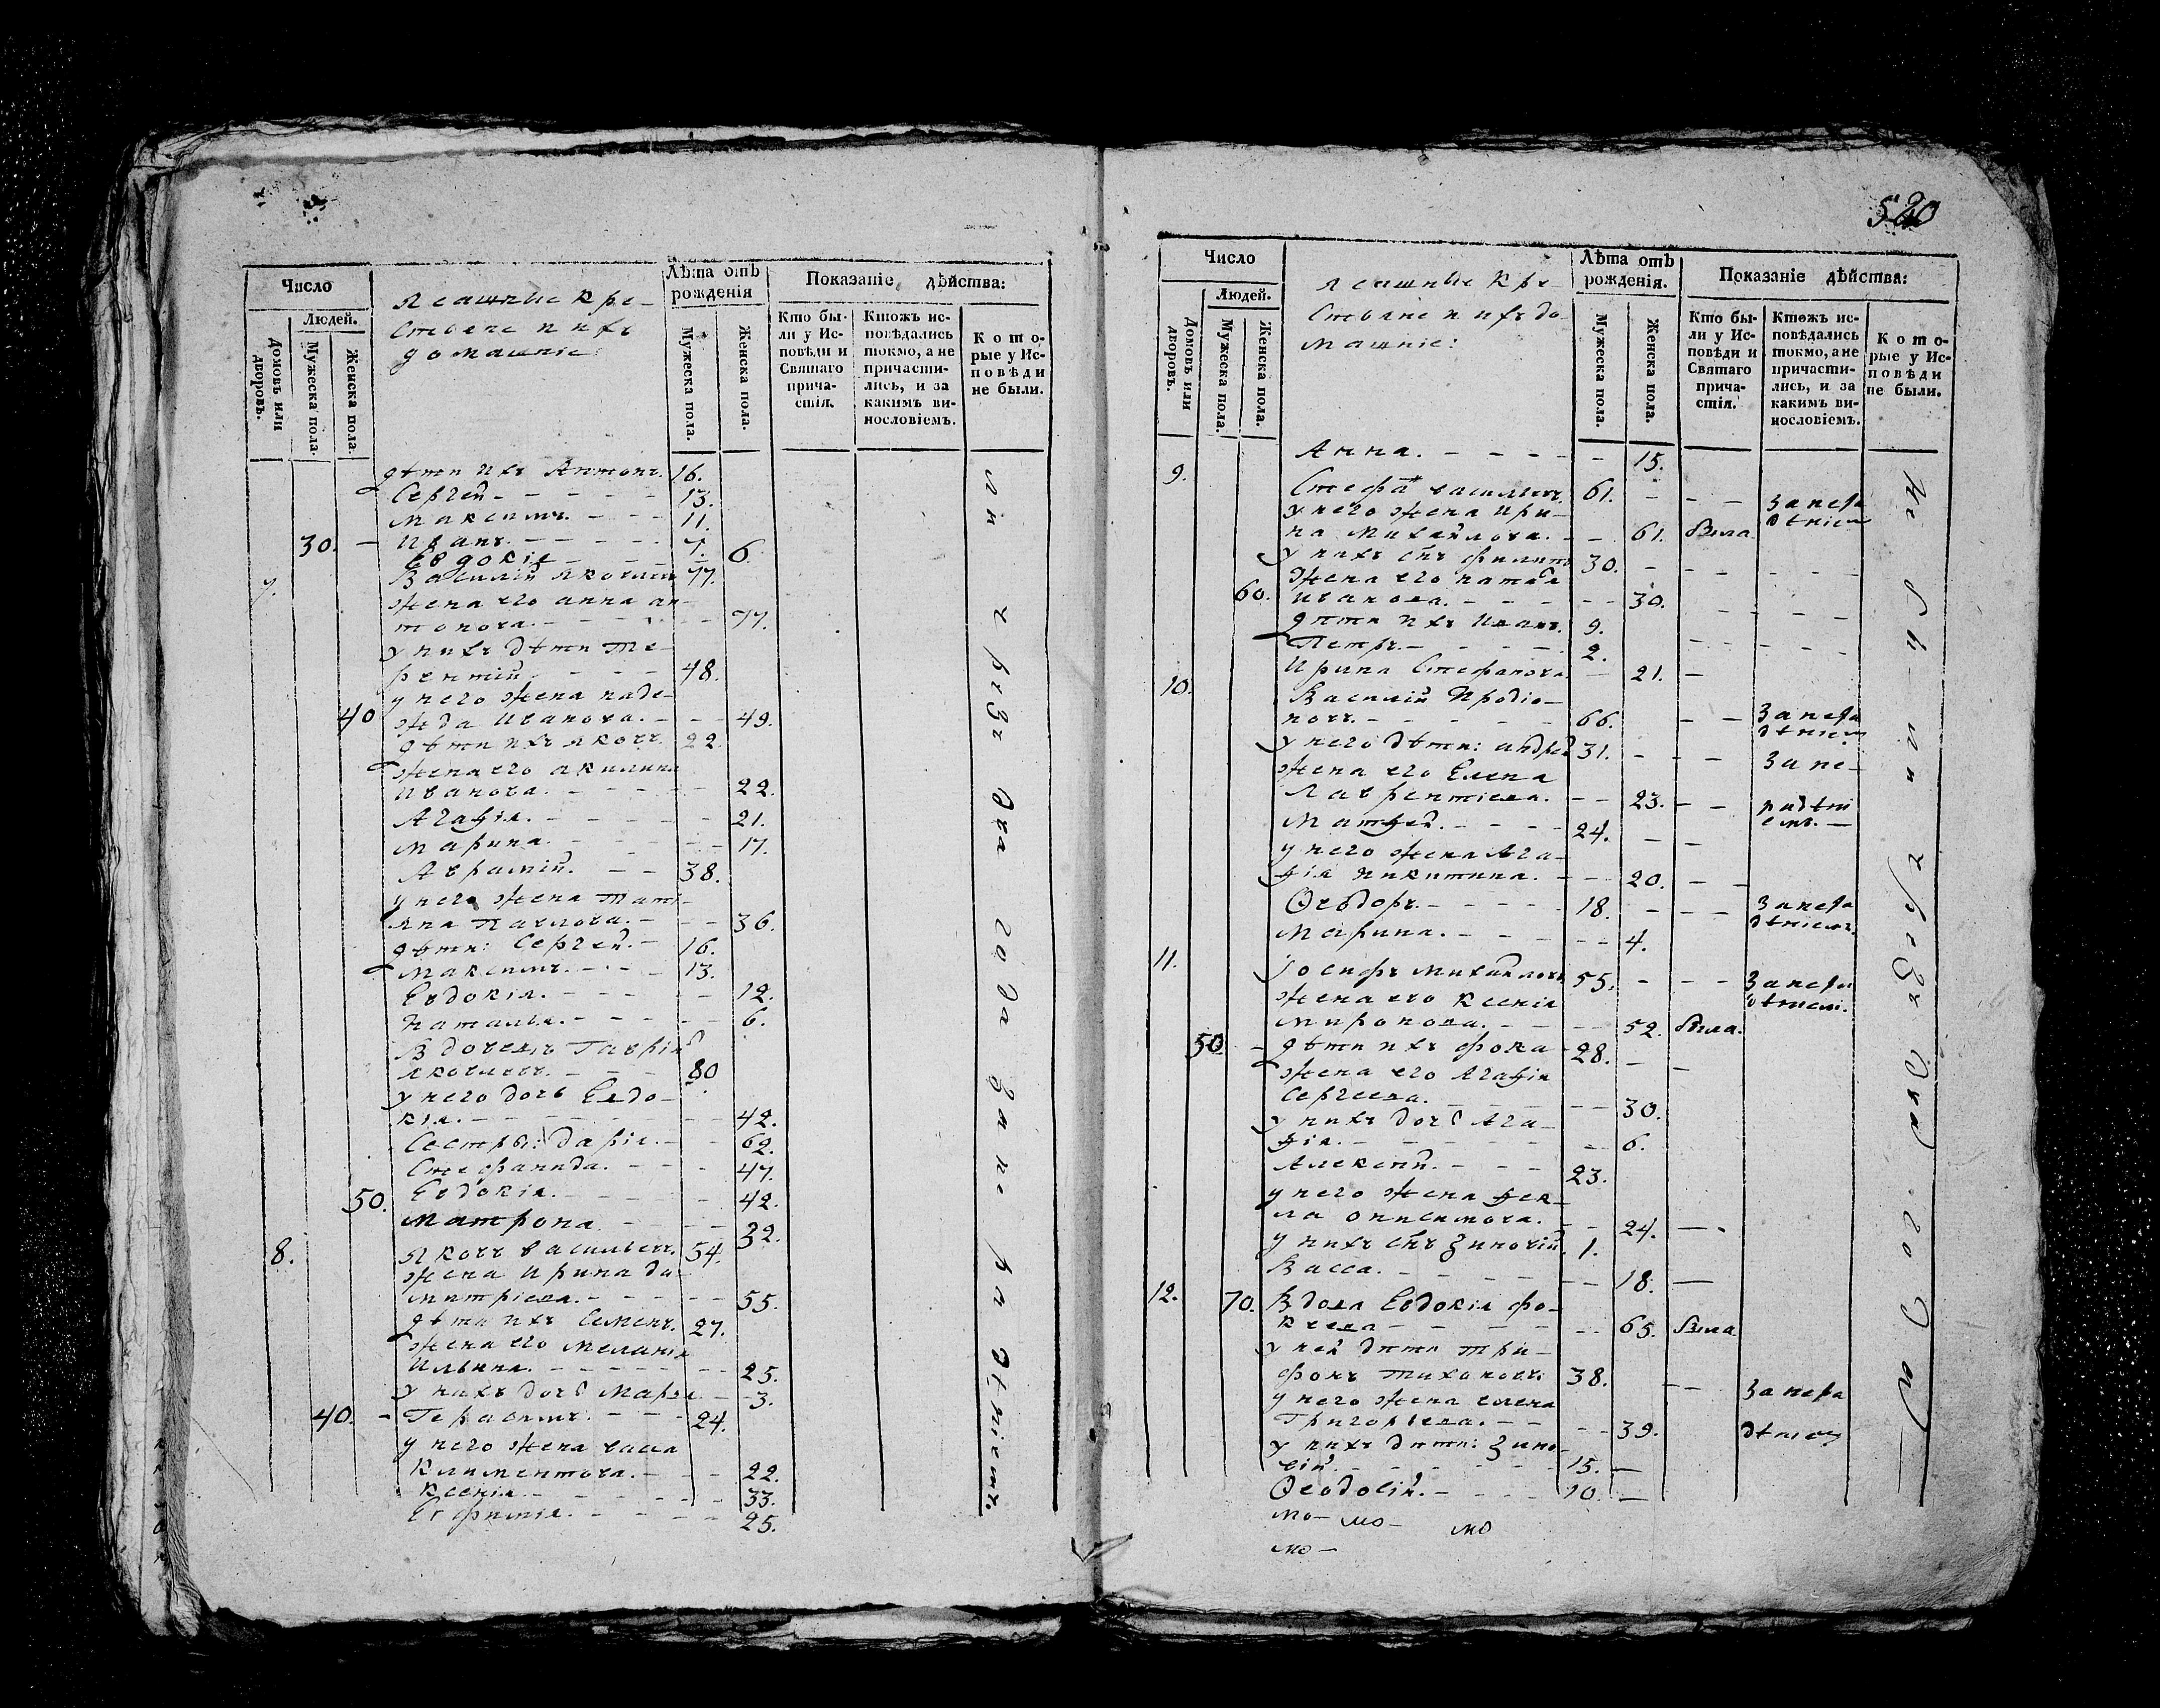 Число
Людей.
Домовъ или дворовъ.
Мужеска пола.
Женска пола.
Лѣта отъ рожденія
Мужеска пола.
Женска пола.
Показаніе дѣйства:
Кто бы-
ли у Ис-
повѣди и
Святаго
прича-
стія.
Ктожъ ис-
повѣдались
токмо, а не
причасти-
лись, и за
какимъ ви-
нословіемъ.
Кото-
рые у Ис-
повѣди
не были.
домашніе:
дѣти ихъ Антонъ. 16.
Сергѣй 13.
Максимъ. 11.
30. Иванъ.
Евдокія 6.
7. Василій Яковлевъ 77.
жена его анна ан-
тонова. 77.
у нихъ дѣти Те-
рентій 48.
у него жена наде-
40 жда Иванова. 49.
дѣти ихъ яковъ. 22.
жена его акилина
Иванова. 22.
Агафія. 21.
марина. 17.
Аврамій. 38.
у него жена тати-
яна Павлова. 36.
дѣти: Сергѣй. 16.
Максимъ. 13.
Евдокія. 12.
Наталья. 6.
Вдовецъ Гавріил
Яковлевъ. 80
у него дочь Евдо-
кія. 42.
Сестры: Дарія. 62.
Стефанида. 47.
50. Евдокія. 42.
Матрона 32.
8. Яковъ Васильевъ. 54.
жена Ирина Ди-
митріева. 55.
дѣти ихъ Семенъ. 27.
жена его Меланія
Ильина. 25.
у нихъ дочь Марѳа 3.
40. Герасимъ. 24.
у него жена васса
Климентова. 22.
Ксенія. 33.
Евфимія. 25.
чрезъ два года за нерадѣніемъ.
520
Число
Людей.
Домовъ или дворовъ.
Мужеска пола.
Женска пола.
машніе:
Лѣта отъ рожденія.
Мужеска пола.
Женска пола.
Показаніе дѣйства:
Кто бы-
ли у Ис-
повѣди и
Святаго
прича-
стія.
Ктожъ ис-
повѣдались
токмо, а не
причасти-
лись, и за
какимъ ви-
нословіемъ.
Кото-
рые у Ис-
повѣди
не были.
Анна. 15.
9. Стефа васильевъ 61. за нера
у него жена Ири- дѣніем
на Михайлова. 61. была
у нихъ снъ филипъ 30.
жена его натал
60. Иванова. 30.
дѣти ихъ Иванъ. 9.
Петръ. 2.
Ирина Стефанова 21.
10. Василій Иродіо-
новъ. 66. за нера
дѣніем
у него дѣти: андрей 31. за не-
жена его Елена
Лаврентіева. 23. радѣні
емъ.
Матѳей. 24.
у него жена Ага-
ѳія Никитина. 20.
Ѳеодоръ. 18. за нера
дѣніемъ.
Марина. 4.
11. Іосифъ михайловъ 55. за нера
дѣніем.
жена его ксенія
миронова. 52. была.
50 дѣти ихъ фока 28.
жена его Агаѳія
Сергеева. 30.
у нихъ дочь Ага-
ѳія. 6.
Алексій. 23.
у него жена ѳек-
ла онисимова. 24.
у нихъ снъ Зиновій 1.
Васса. 18.
12. 70. Вдова Евдокія фо-
кеева 65. была
у ней дѣти три-
фонъ тихоновъ. 38. за нера
у него жена елена
Григорьева. 39. дѣніем
у нихъ дѣти: Зино-
вій. 15.
Ѳеодосій. 10.
мо- мо- мо
мо-